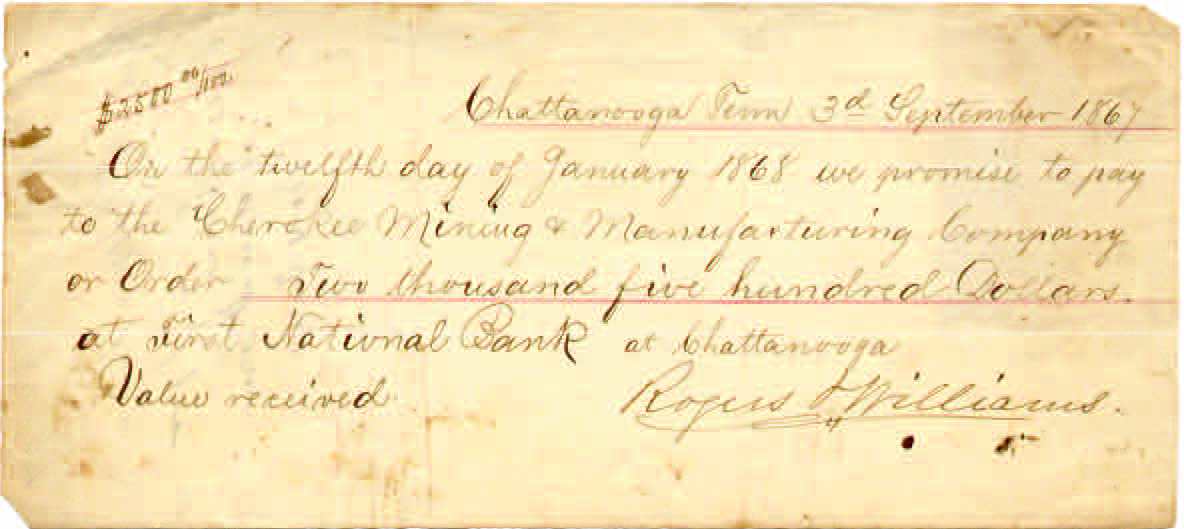 $2500 00/100
Chattanooga Tenn 3d September 1867
On the twelfth day of January 1868 we promise to pay
to the Cherokee Mining & Manufacturing Company
or Order Two thousand five hundred Dollars.
at First National Bank at Chattanooga
Value received
Rogers & Williams.